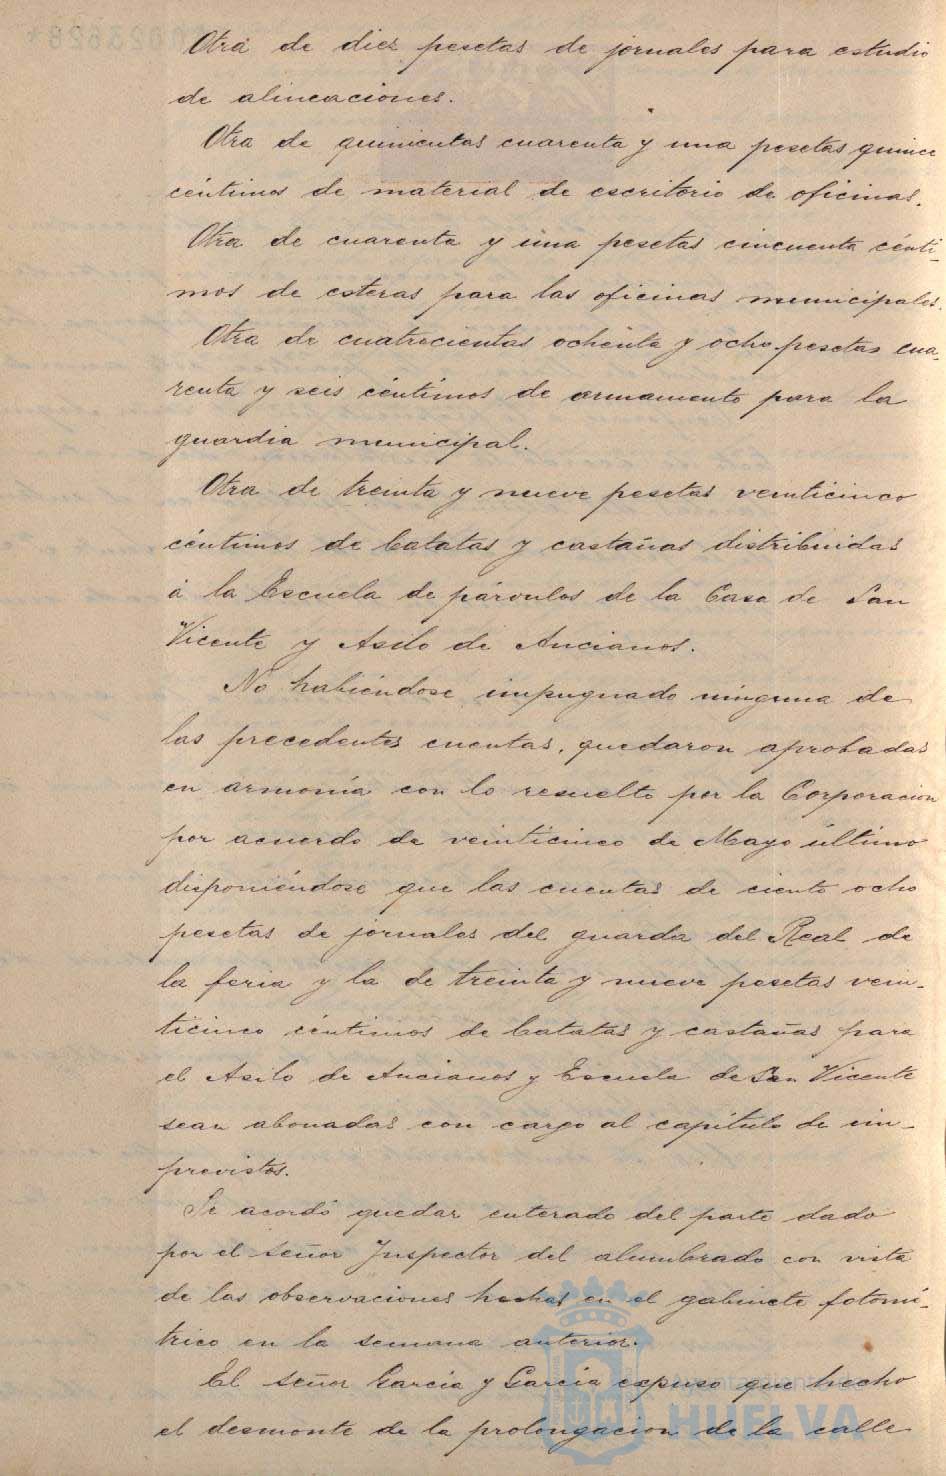 Otra de diez pesetas de jornales para estudio
de alineaciones.
Otra de quinientas cuarenta y una pesetas quince
céntimos de material de escritorio de oficinas.
Otra de cuarenta y una pesetas cincuenta cénti-
mos de esteras para las oficinas municipales.
Otra de cuatrocientas ochenta y ocho pesetas cua-
renta y seis céntimos de armamento para la
guardia municipal.
Otra de treinta y nueve pesetas veinticinco
céntimos de batatas y castañas distribuidas
á la Escuela de párvulos de la Casa de San
Vicente y Asilo de Ancianos.
No habiéndose impugnado ninguna de
las precedentes cuentas, quedaron aprobadas
en armonía con lo resuelto por la Corporacion
por acuerdo de veinticinco de Mayo último
disponiéndose que las cuentas de ciento ocho
pesetas de jornales del guarda del Real de
la feria y la de treinta y nueve pesetas vein-
ticinco céntimos de batatas y castañas para
el Asilo de Ancianos y Escuela de San Vicente
sean abonadas con cargo al capítulo de im-
previstos.
Se acordó quedar enterado del parte dado
por el señor Inspector del alumbrado con vista
de las observaciones hechas en el gabinete fotomé-
trico en la semana anterior.
El señor Garcia y Garcia espuso que hecho
el desmonte de la prolongacion de la calle
Ayuntamiento de
HUELVA